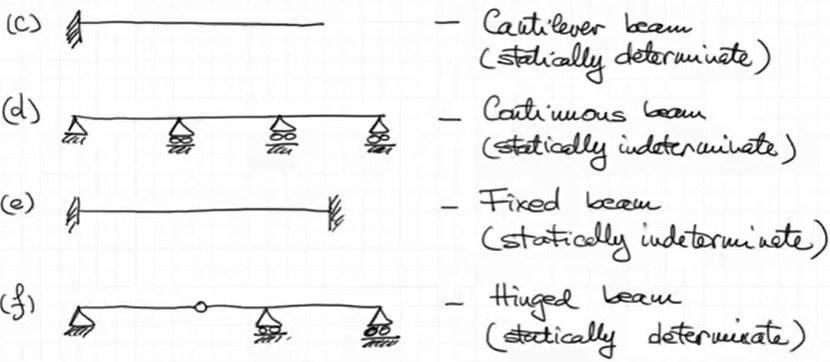 (c) – Cantilever beam
(statically determinate)
(d) – Continuous beam
(statically indeterminate)
(e) – Fixed beam
(statically indeterminate)
(f) – Hinged beam
(statically determinate)